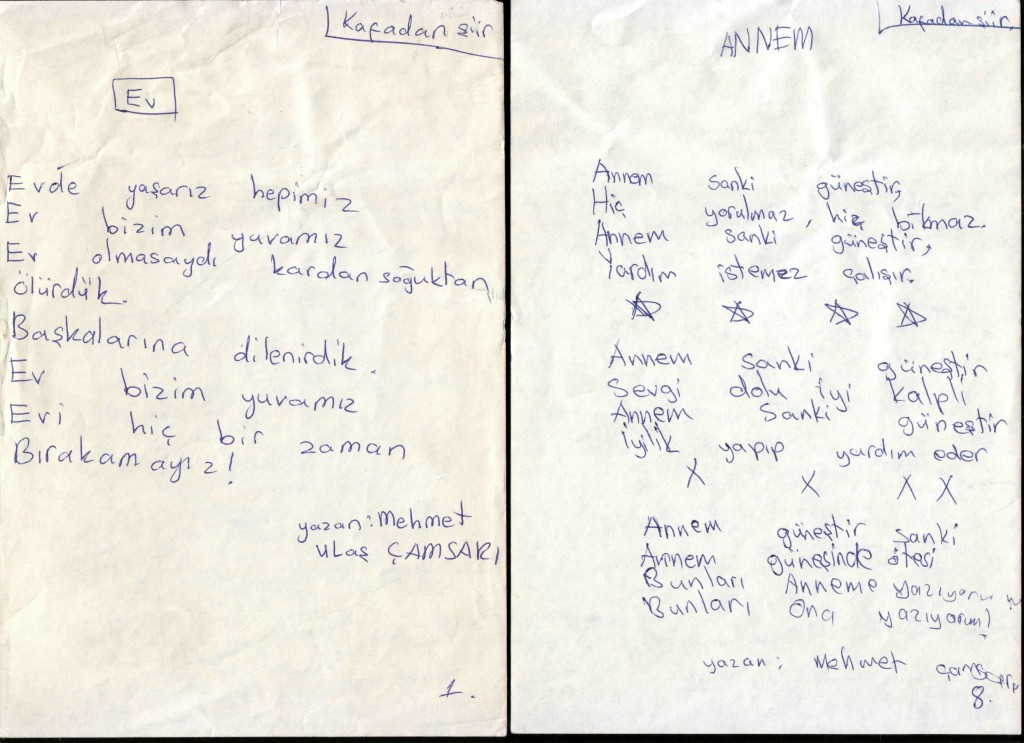 Kafadan şiir
Ev
Evde yaşarız hepimiz
Ev bizim yuvamız
Ev olmasaydı kardan soğuktan
ölürdük.
Başkalarına dilenirdik.
Ev bizim yuvamız
Evi hiç bir zaman
Bırakamayız!
yazan: Mehmet
uLaş ÇAMSARI
1.
Kafadan şiir
ANNEM
Annem sanki güneştir,
Hiç yorulmaz, hiç bıkmaz.
Annem sanki güneştir,
Yardım istemez çalışır.
Annem sanki güneştir
Sevgi dolu iyi kalpli
Annem Sanki güneştir
İyilik yapıp yardım eder
X X X X
Annem güneştir sanki
Annem güneşinde ötesi
Bunları Anneme yazıyorum
Bunları Ona yazıyorum!
yazan: Mehmet Çamsarı
8.